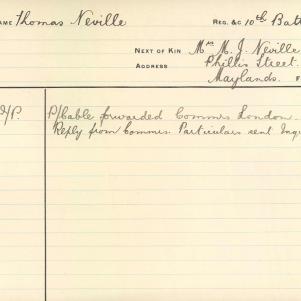 AME Thomas Neville REG. &C 10th Batt
NEXT OF KIN Mrs M. J. Neville
ADDRESS Phillis Street.
Maylands. F
P/Cable forwarded Commrs London.
Reply from Commrs. Particulars sent Inqu